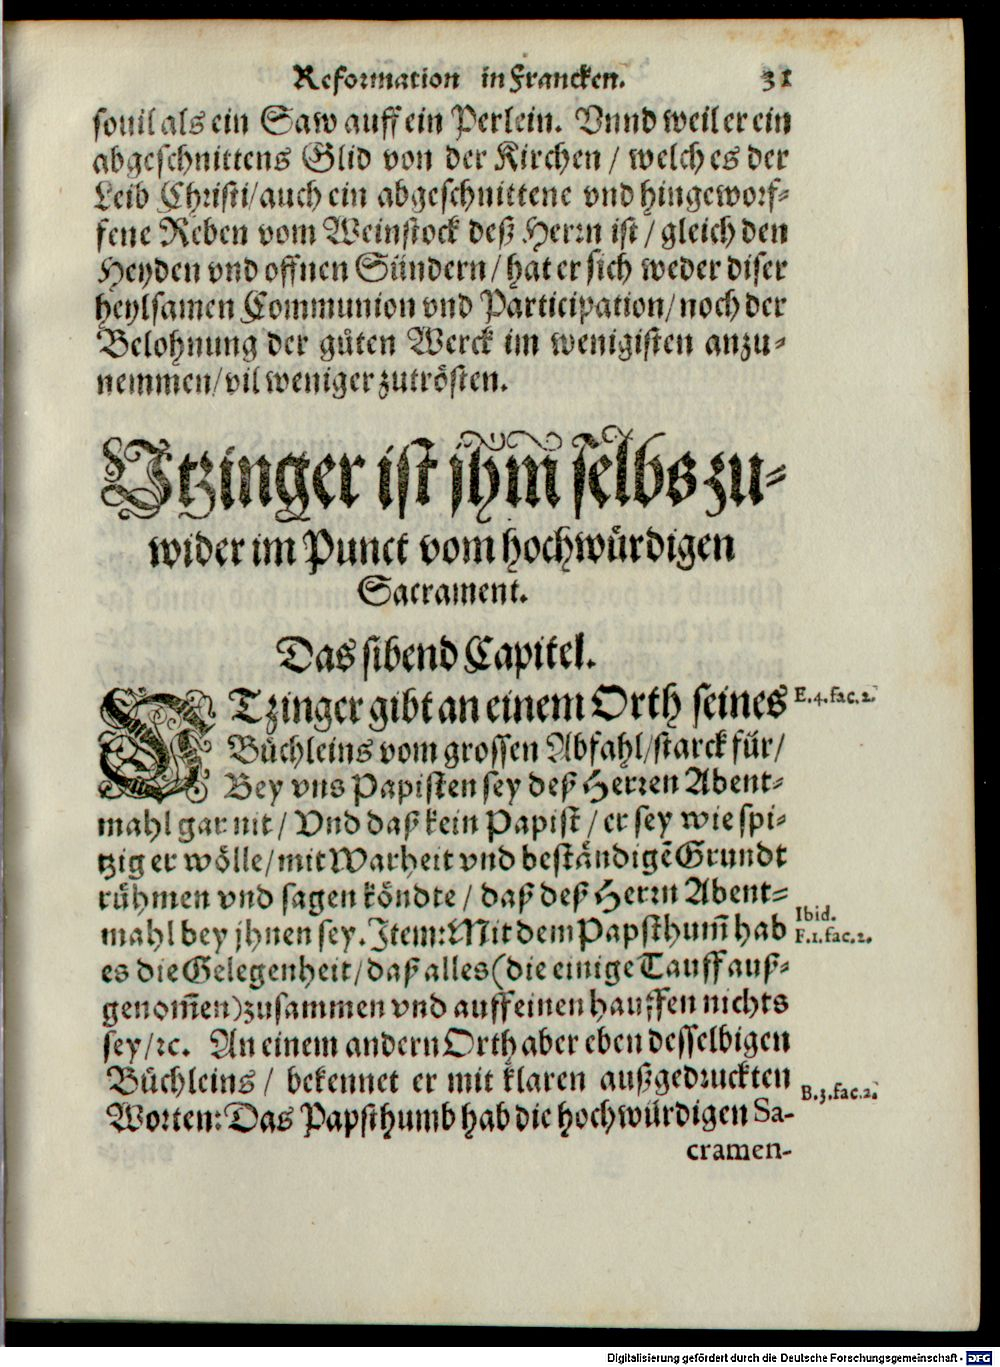 Reformation in Francken. 31
souil als ein Saw auff ein Perlein. Vnnd weil er ein
abgeschnittens Glid von der Kirchen / welches der
Leib Christi / auch ein abgeschnittene vnd hingeworf-
fene Reben vom Weinstock deß Herrn ist / gleich den
Heyden vnd offnen Sündern / hat er sich weder diser
heylsamen Communion vnd Participation / noch der
Belohnung der guten Werck im wenigisten anzu-
nemmen / vil weniger zutrösten.
Vtzinger ist jhm̄ selbs zu-
wider im Punct vom hochwürdigen
Sacrament.
Das sibend Capitel.
VTzinger gibt an einem Orth seines E.4.fac.2.
Büchleins vom grossen Abfahl / starck für /
Bey vns Papisten sey deß Herren Abent-
mahl gar nit / Vnd daß kein Papist / er sey wie spi-
tzig er wölle / mit Warheit vnd beständigē Grundt
rühmen vnd sagen köndte / daß deß Herrn Abent-
mahl bey jhnen sey. Item: Mit dem Papsthum̄ hab Ibid. F.1.fac.2.
es die Gelegenheit / daß alles (die einige Tauff auß-
genom̄en) zusammen vnd auff einen hauffen nichts
sey / ꝛc. An einem andern Orth aber eben desselbigen
Büchleins / bekennet er mit klaren außgedruckten B.3.fac.2.
Worten: Das Papsthumb hab die hochwürdigen Sa-
cramen-
Digitalisierung gefördert durch die Deutsche Forschungsgemeinschaft - DFG